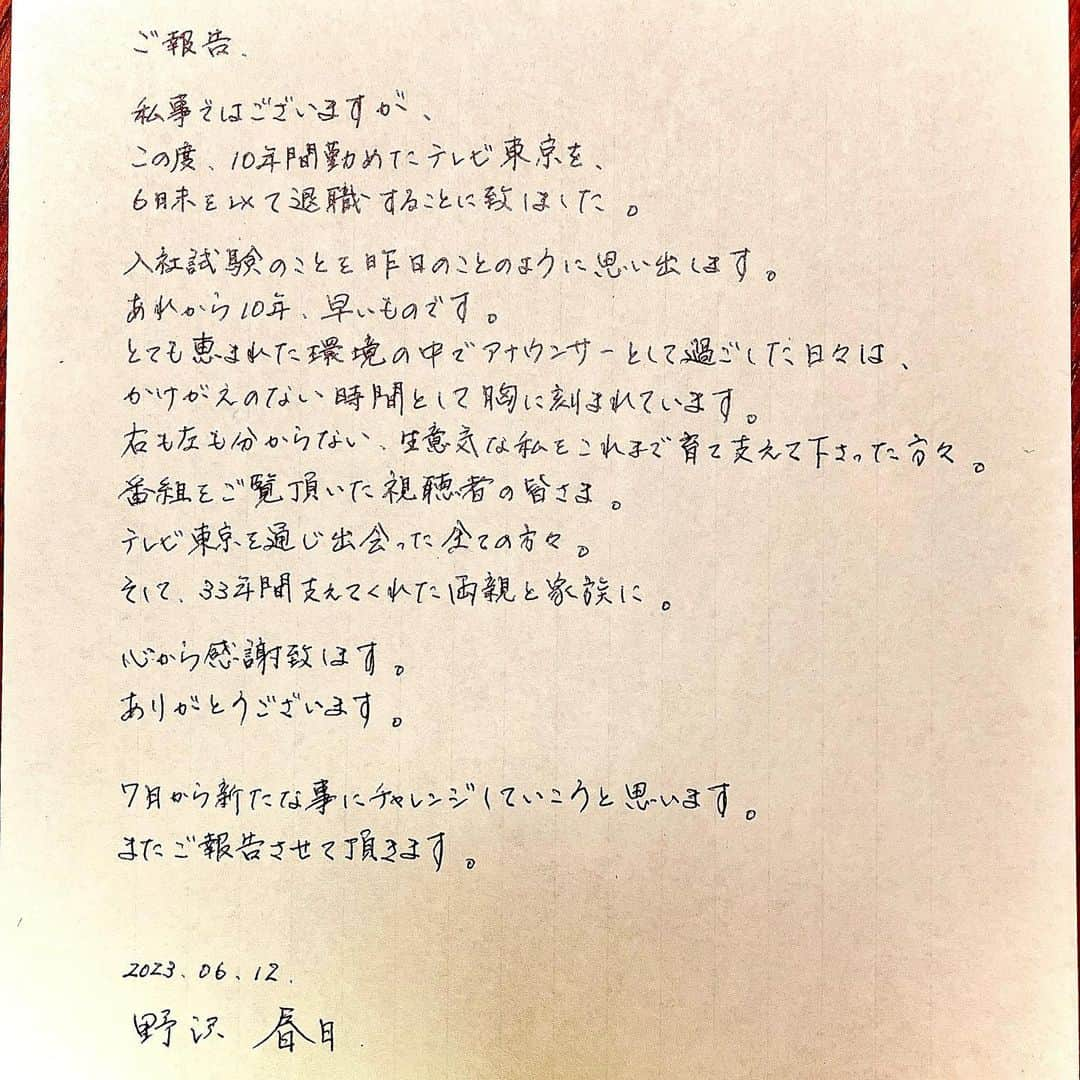 ご報告.
私事ではございますが、
この度、10年間勤めたテレビ東京を、
6月末を以て退職することに致しました。
入社試験のことを昨日のことのように思い出します。
あれから10年、早いものです。
とても恵まれた環境の中でアナウンサーとして過ごした日々は、
かけがえのない時間として胸に刻まれています。
右も左も分からない、生意気な私をこれまで育て支えて下さった方々。
番組をご覧頂いた視聴者の皆さま。
テレビ東京を通じ出会った全ての方々。
そして、33年間支えてくれた両親と家族に。
心から感謝致します。
ありがとうございます。
7月から新たな事にチャレンジしていこうと思います。
またご報告させて頂きます。
2023.06.12.
野沢 春日